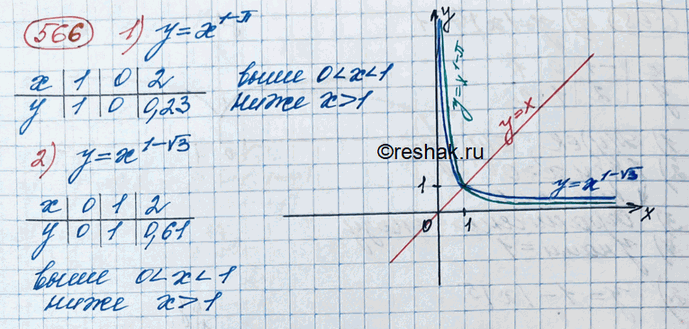 566 1) y = x^(1-π)
x | 1 | 0 | 2
y | 1 | 0 | 0,23
выше 0 < x < 1
ниже x > 1
2) y = x^(1-√3)
x | 0 | 1 | 2
y | 0 | 1 | 0,61
выше 0 < x < 1
ниже x > 1
y
y = x^(1-π)
y = x
©reshak.ru
1
y = x^(1-√3)
0
1
x